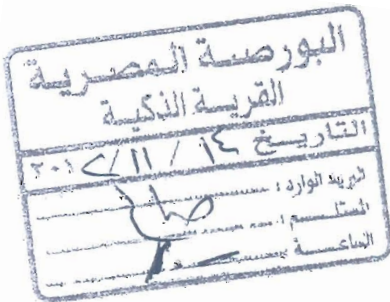 البورصة المصرية
القرية الذكية
التاريخ ١٤ / ١١ / ٢٠١٢
البريد الوارد :
المستلم :
الساعة :